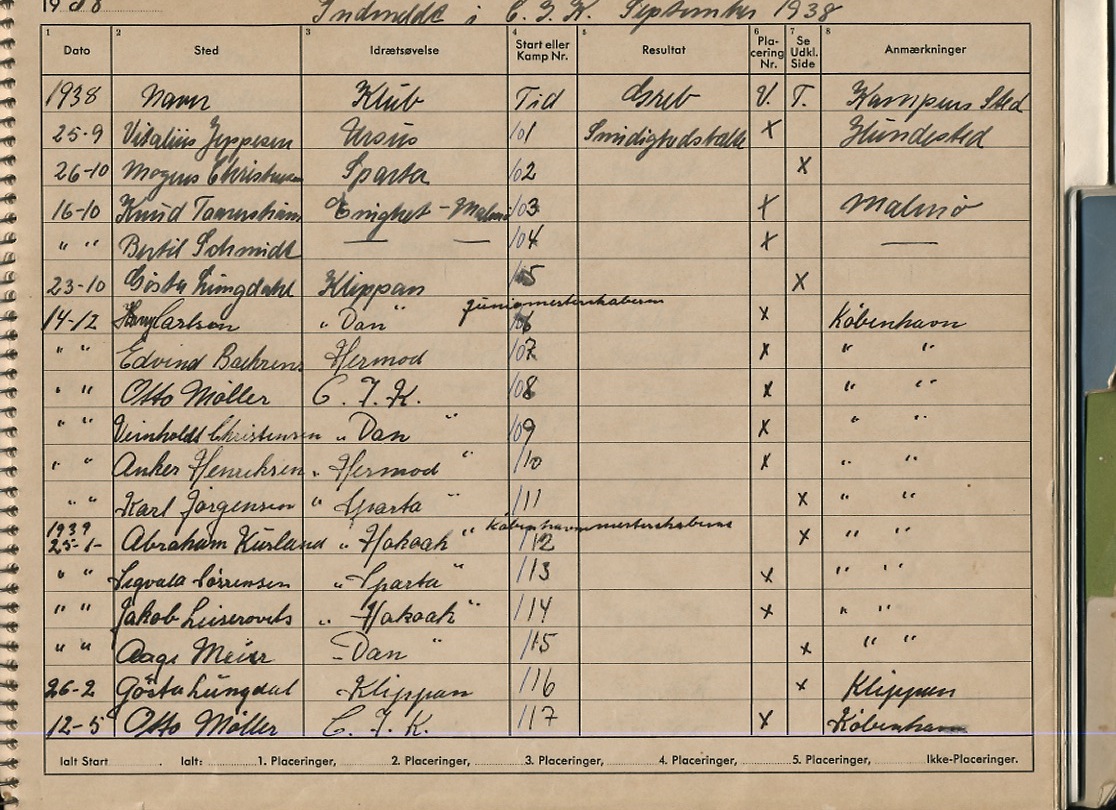 1938 Indmeldt i C.I.K. September 1938
1 Dato 2 Sted 3 Idrætsøvelse 4 Start eller Kamp Nr. 5 Resultat 6 Placering Nr. 7 Se Udkl. Side 8 Anmærkninger
1938 Navn Klub Tid Greb V. T. Kampens Sted
25-9 Vitalius Jeppesen Ursus 101 Smidighedstække x Hundested
26-10 Mogens Christensen Sparta 102 x
16-10 Knud Enighet - Malmö 103 x Malmö
" " Bertil Schmidt — — 104 x —
23-10 Gösta Ljungdahl Klippan 105 x
Juniomesterskaberne
14-12 Harry Carlsen "Dan" 106 x København
" " Edvind Baehrens Hermod 107 x " "
" " Otto Møller C.I.K. 108 x " "
" " Veinholdt Christensen "Dan" 109 x " "
" " Anker Henriksen "Hermod" 110 x " "
" " Karl Jørgensen "Sparta" 111 x " "
Københavnsmesterskaberne
1939
25-1- Abraham Kurland "Hakoah" 112 x " "
" " Sigvald Sørrensen "Sparta" 113 x " "
" " Jakob Leiserovits "Hakoah" 114 x " "
" " Aage Meier "Dan" 115 x " "
26-2 Gösta Lungdal Klippan 116 x Klippan
12-5 Otto Møller C.I.K. 117 x København
Ialt Start Ialt: 1. Placeringer, 2. Placeringer, 3. Placeringer, 4. Placeringer, 5. Placeringer, Ikke-Placeringer.